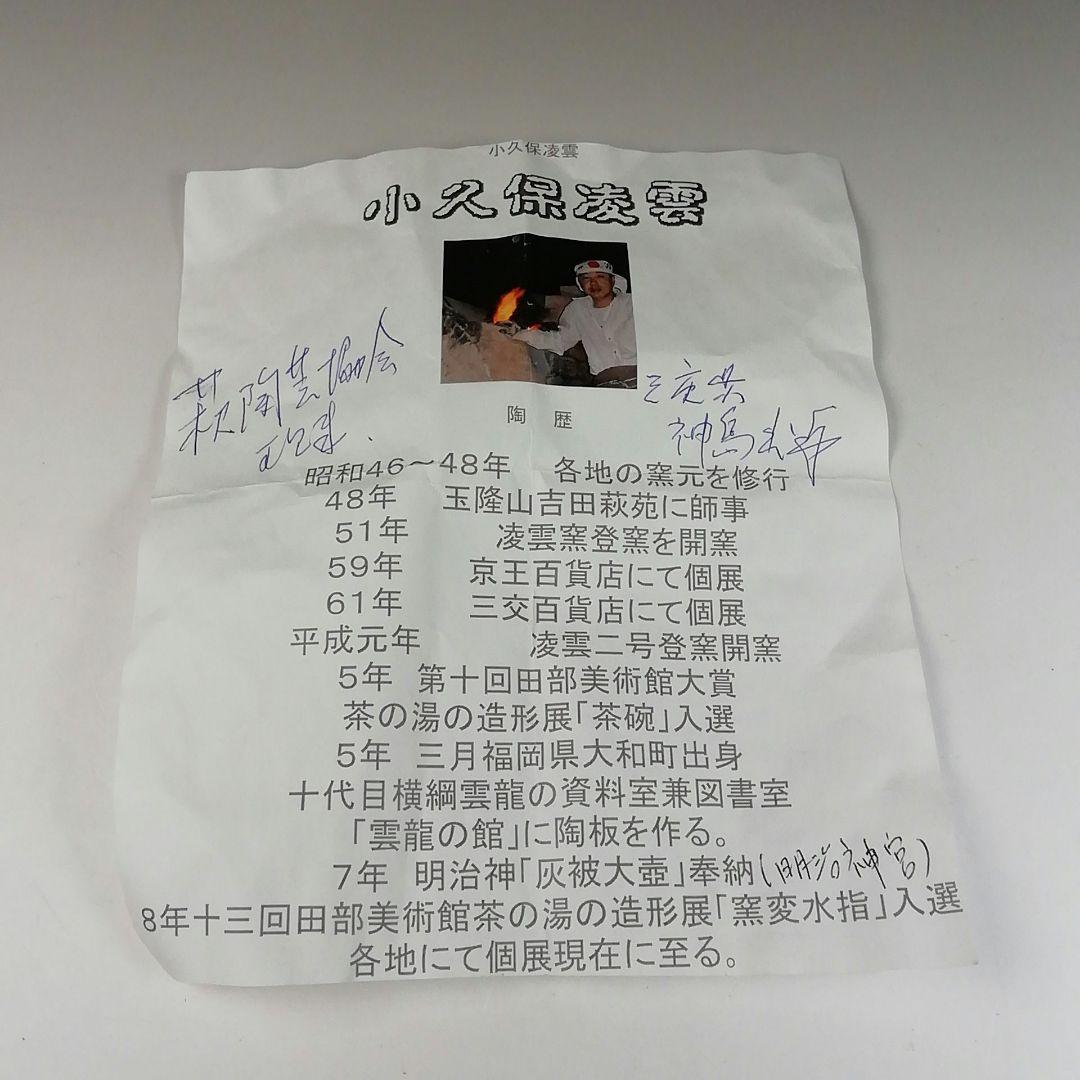 小久保凌雲
小久保凌雲
萩陶芸協会
陶歴
昭和46～48年 各地の窯元を修行
48年 玉隆山吉田萩苑に師事
51年 凌雲窯登窯を開窯
59年 京王百貨店にて個展
61年 三交百貨店にて個展
平成元年 凌雲二号登窯開窯
5年 第十回田部美術館大賞
茶の湯の造形展「茶碗」入選
5年 三月福岡県大和町出身
十代目横綱雲龍の資料室兼図書室
「雲龍の館」に陶板を作る。
7年 明治神「灰被大壺」奉納(明治神宮)
8年十三回田部美術館茶の湯の造形展「窯変水指」入選
各地にて個展現在に至る。